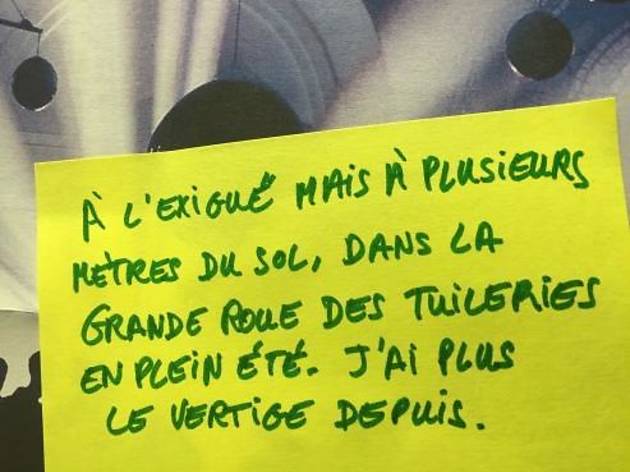 À L'EXIGUË MAIS À PLUSIEURS
MÈTRES DU SOL, DANS LA
GRANDE ROUE DES TUILERIES
EN PLEIN ÉTÉ. J'AI PLUS
LE VERTIGE DEPUIS.